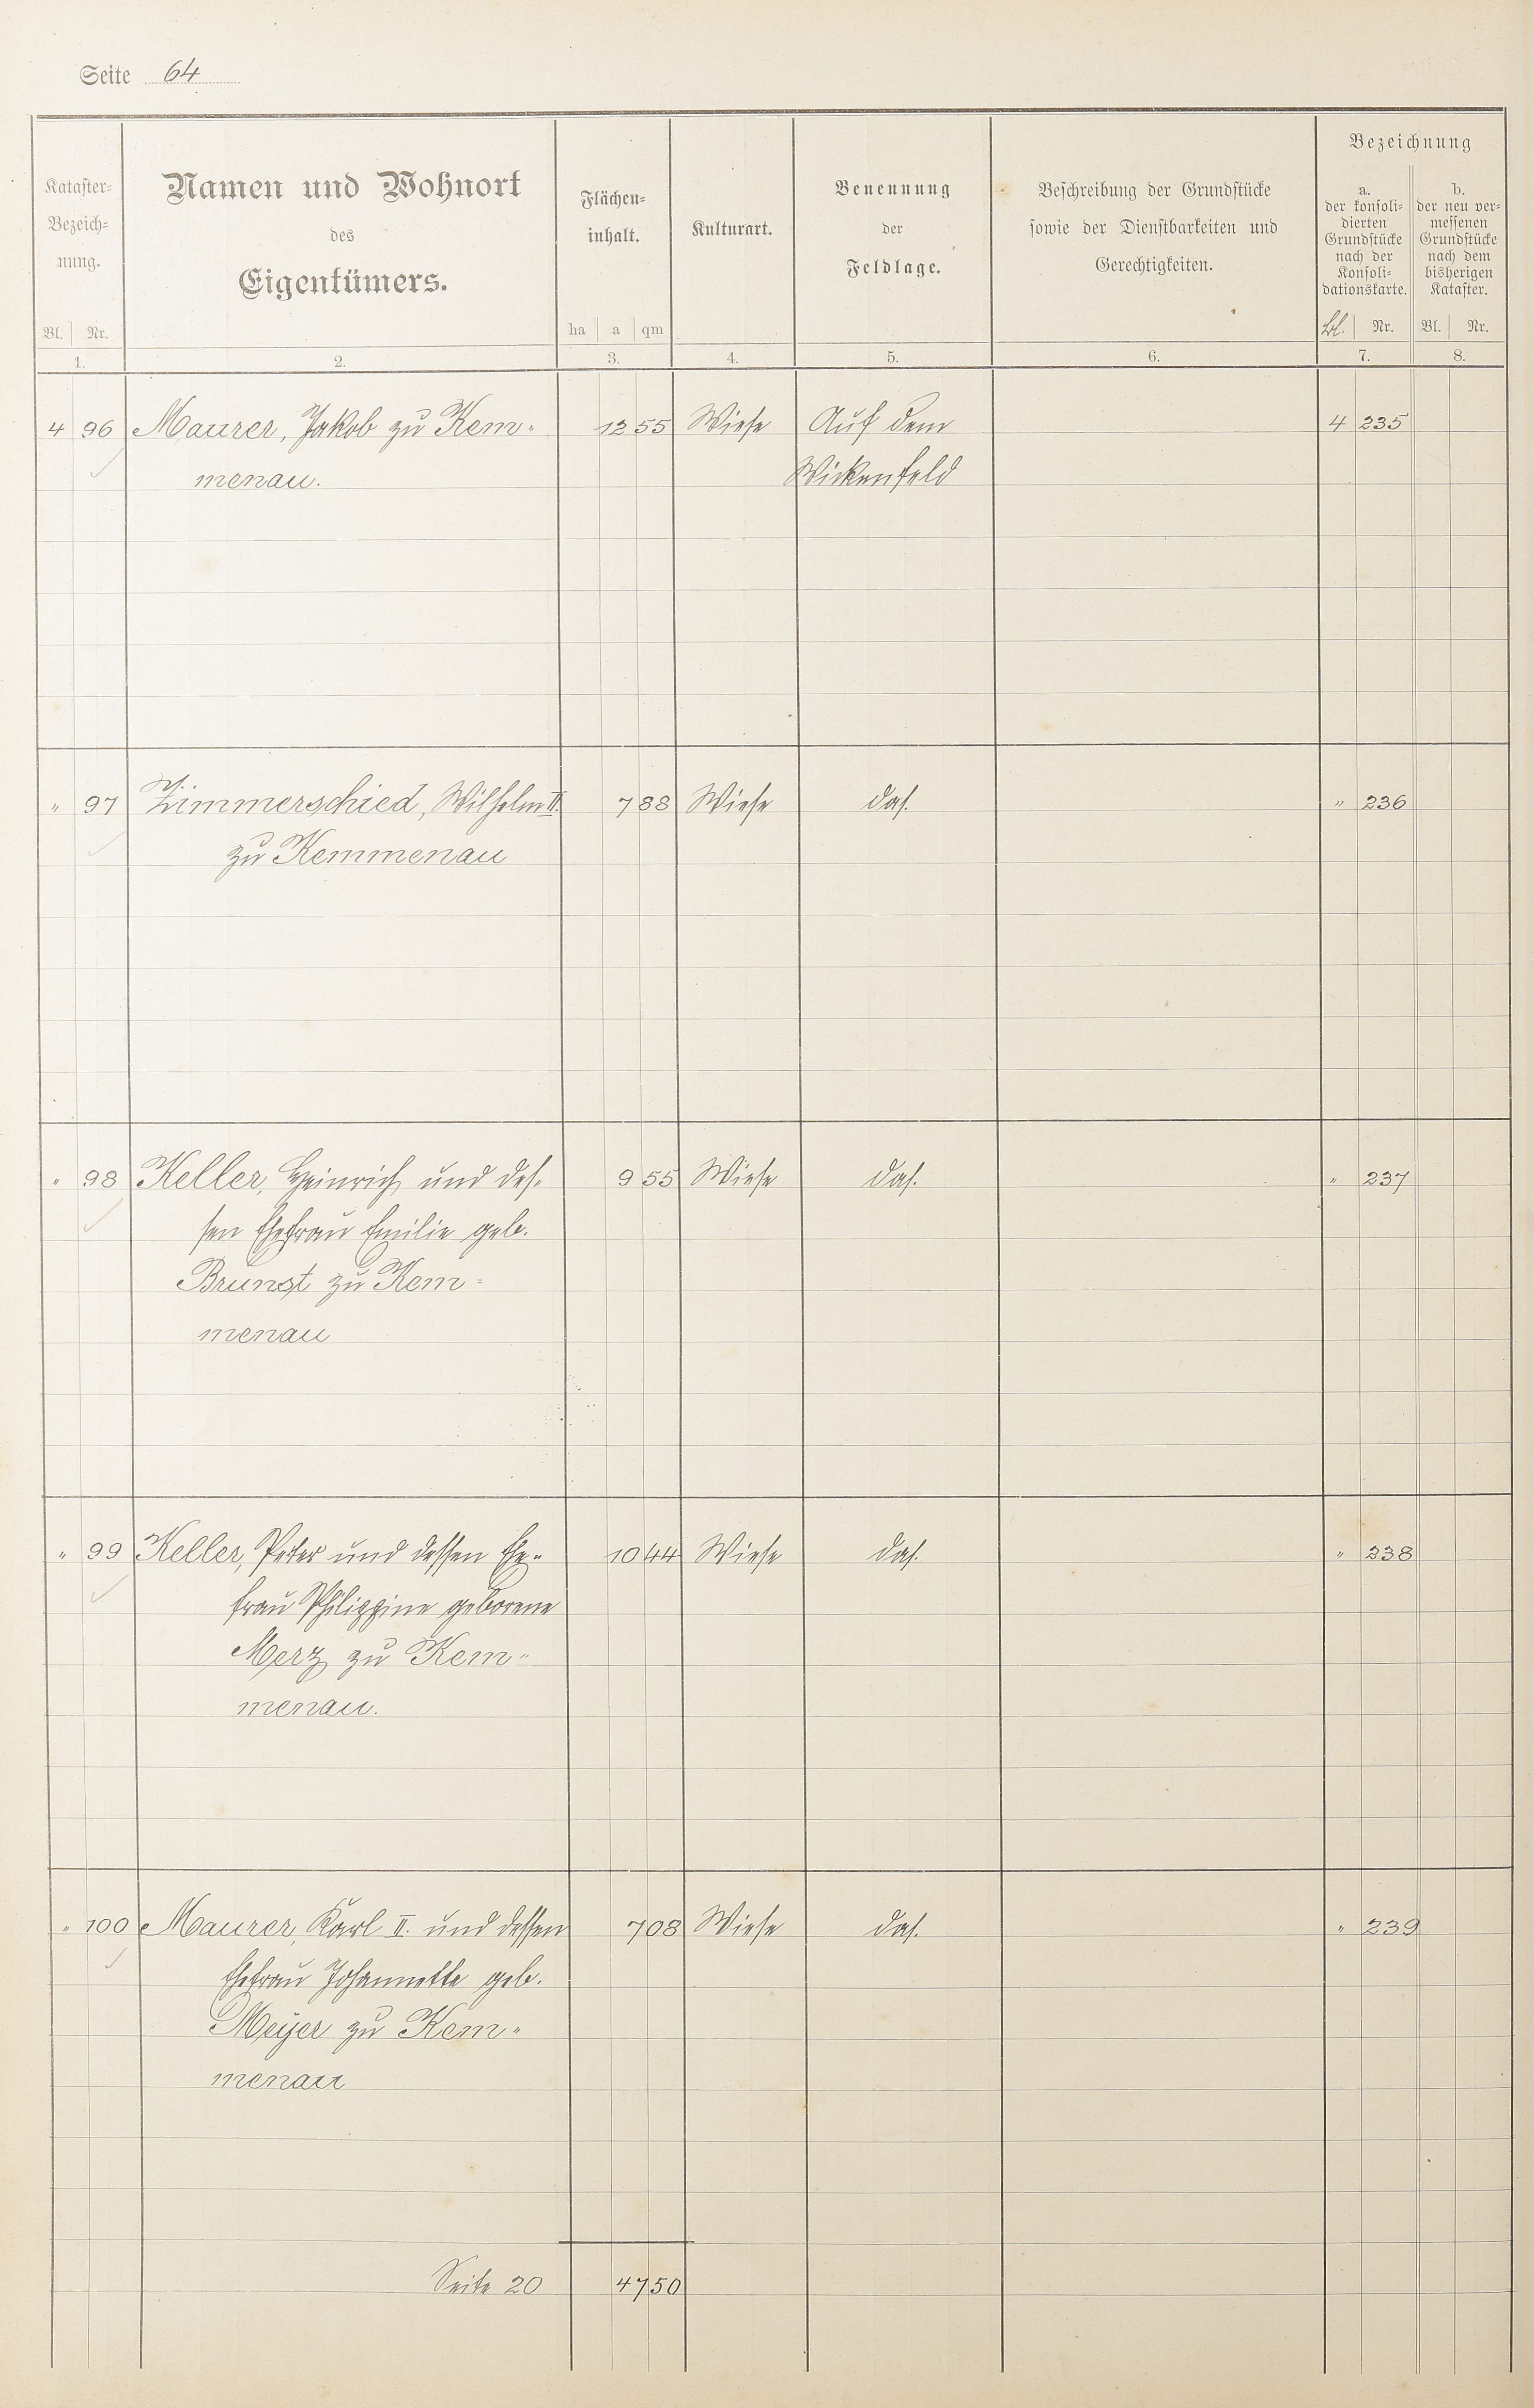 Seite 64
Kataster-
Bezeich-
nung.
Bl. Nr.
1.
Namen und Wohnort
des
Eigentümers.
2.
Flächen-
inhalt.
ha a qm
3.
Kulturart.
4.
Benennung
der
Feldlage.
5.
Beschreibung der Grundstücke
sowie der Dienstbarkeiten und
Gerechtigkeiten.
6.
Bezeichnung
a.
der konsoli-
dierten
Grundstücke
nach der
Konsoli-
dationskarte.
Bl. Nr.
7.
b.
der neu ver-
messenen
Grundstücke
nach dem
bisherigen
Kataster.
Bl. Nr.
8.
4 96 Maurer, Jakob zu Kem- 12 55 Wiese Auf dem 4 235
menau. Wickenfeld
" 97 Zimmerschied, Wilhelm II. 7 88 Wiese das. " 236
zu Kemmenau
" 98 Keller, Heinrich und des- 9 55 Wiese das. " 237
sen Ehefrau Emilie geb.
Brungt zu Kem-
menau
" 99 Keller, Peter und dessen Ehe- 10 44 Wiese das. " 238
frau Philippine geborene
Merz zu Kem-
menau.
" 100 Maurer, Karl II. und dessen 7 08 Wiese das. " 239
Ehefrau Johannette geb.
Meyer zu Kem-
menau
Seite 20 47 50